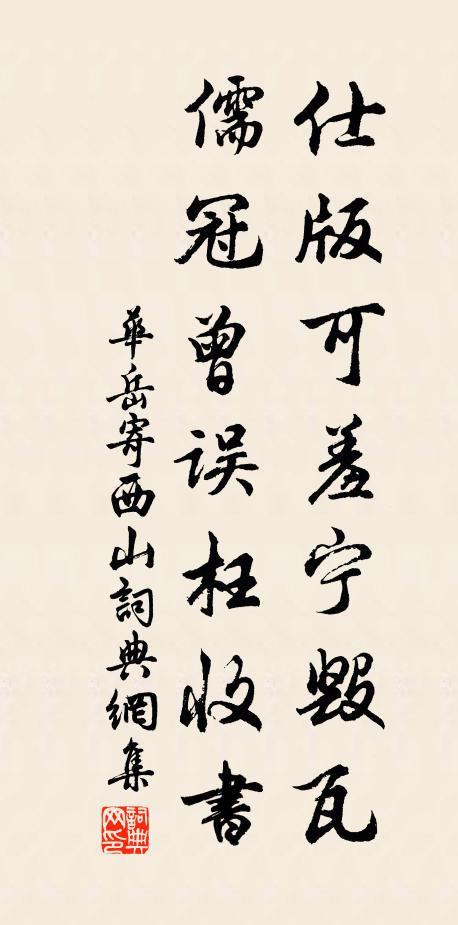 仕版可羞宁毁瓦
儒冠曾误枉收書
華岳寄西山詞典網集
詞典网印